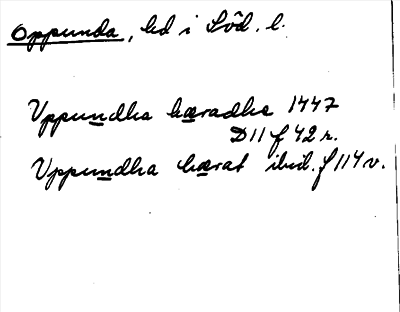 Oppunda, hd i Söd. l.
Vppundha hæradhe 1447
D11 f 42 r.
Vppundha hærat ibid. f 114 v.